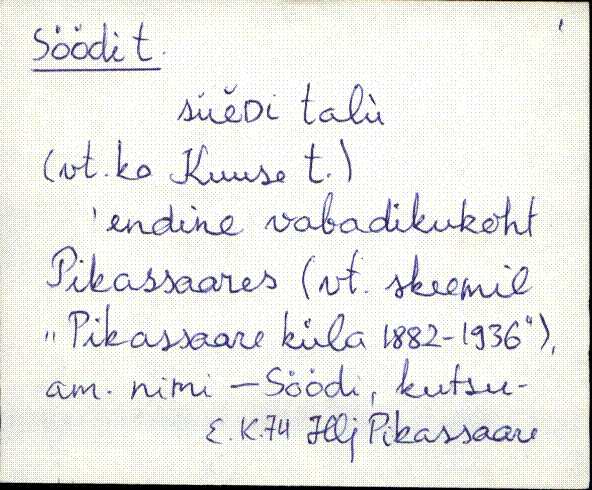 Söödi t.
süĕDi talù
(vt. ka Kuuse t.)
'endine vabadikukoht
Pikassaares (vt. skeemil
„Pikassaare küla 1882-1936"),
am. nimi — Söödi, kutsu-
E.K.74 Hlj Pikassaare